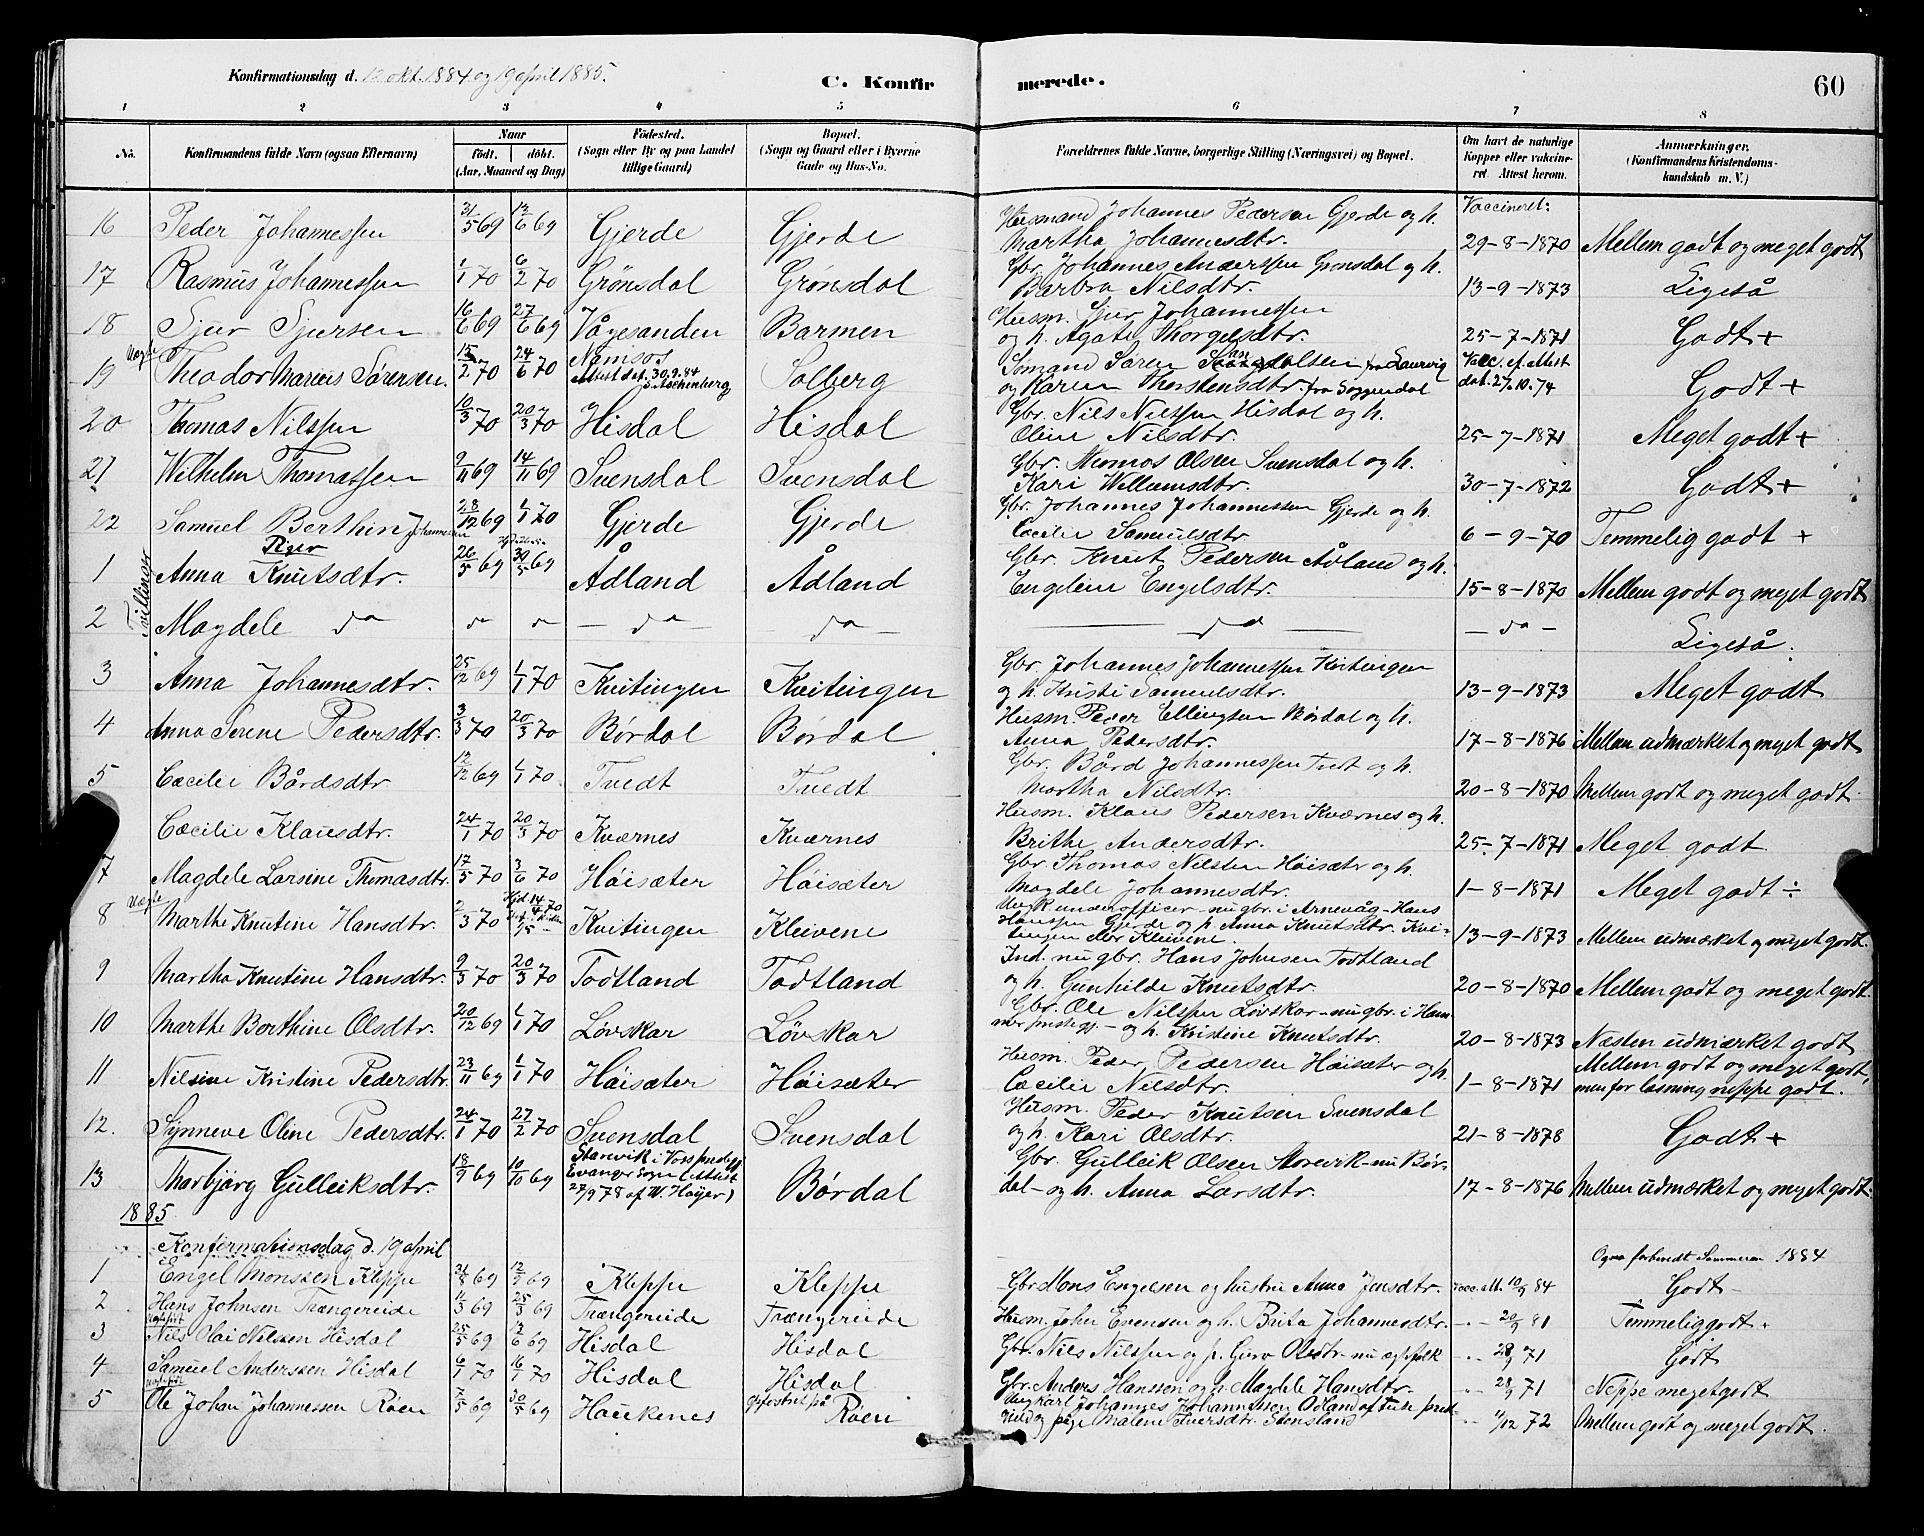 Konfirmationsdag d. 12 okt. 1884 og 19 april 1885.
C. Konfirmerede.
60
1 2 3 4 5 6 7 8
No. Konfirmandens fulde Navn (ogsaa Efternavn) Naar født. døbt. (Aar, Maaned og Dag) Födested. (Sogn eller By og paa Landet tillige Gaard) Bopæl. (Sogn og Gaard eller i Byerne Gade og Hus-No. Forældrenes fulde Navne, borgerlige Stilling (Næringsvei) og Bopæl. Om havt de naturlige Kopper eller vakcineret. Attest herom. Anmærkninger. (Konfirmandens Kristendomskundskab m. V.)
16 Peder Johannessen 31/5 69 13/6 69 Gjerde Gjerde Husmand Johannes Pedersen Gjerde og h. Martha Johannesdtr. Vaccineret: 29-8-1870 Mellem godt og meget godt
17 Rasmus Johannessen 1/1 70 6/2 70 Grönsdal Grönsdal Gbr. Johannes Anderssen Grønsdal og h. Barbra Nilsdtr. 13-9-1873 Ligeså
18 Sjur Sjursen 16/6 69 27/6 69 Vågesanden Barmen Husm. Sjur Johannessen og h. Agate Thorgelsdtr. 25-7-1871 Godt +
19 Uægte Theodor Marius Sørensen 15/2 70 24/6 70 Namsos Attest dat. 30.9.84 S. Aschenberg Solberg Sömand Sören Olsen fra Laurvig og Karen Thorstensdtr. fra Soggendal Vacc. ef. Attest dat. 27.10.74 Godt +
20 Thomas Nilssen 10/3 70 20/3 70 Hisdal Hisdal Gbr. Nils Nilssen Hisdal og h. Oline Nilsdtr. 25-7-1871 Meget godt +
21 Wilhelm Thomassen 9/11 69 14/11 69 Svensdal Svensdal Gbr. Thomas Olsen Svensdal og h. Kari Willumsdtr. 30-7-1872 Godt +
22 Samuel Berthin Johannessen 28/12 69 1/1 70 Gjerde Gjerde Gbr. Johannes Johannessen Gjerde og h. Cæcilie Samuelsdtr. 6-9-70 Temmelig godt +
Piger
Tvillinger
1 Anna Knutsdtr. 26/5 69 30/5 69 Ådland Ådland Gbr. Knut Pedersen Ådland og h. Engeline Engelsdtr. 15-8-1870 Mellem godt og meget godt
2 Magdele do do do — do — — do — — do — — do — Ligeså.
3 Anna Johannesdtr. 25/12 69 1/1 70 Kvitingen Kvitingen Gbr. Johannes Johannessen Kvitingen og h. Kristi Samuelsdtr. 13-9-1873 Meget godt
4 Anna Serene Pedersdtr. 3/3 70 20/3 70 Børdal Børdal Husm. Peder Ellingsen Børdal og h. Anna Pedersdtr. 17-8-1876 Mellem udmærket og meget godt
5 Cæcilie Bårdsdtr 12/12 69 1/1 70 Tvedt Tvedt Gbr. Bård Johannessen Tvedt og h. Martha Nilsdtr. 20-8-1870 Mellem godt og meget godt
Cæcilie Klausdtr. 24/1 70 20/3 70 Kværnes Kværnes Husm. Klaus Pedersen Kværnes og h. Brithe Andersdtr. 25-7-1871 Meget godt
7 Magdele Larsine Thomasdtr. 17/5 70 3/6 70 Höisæter Höisæter Gbr. Thomas Nilsen Höisæter og h. Magdele Johannesdtr. 1-8-1871 Meget godt ÷
8 Uægte Marthe Knutine Hansdtr. 2/3 70 Hjd. 14/4 70 1/5 Kvitingen Kleivene Ugk underofficer - nu gbr. i Arnevåg - Hans Hanssen Gjerde og p. Anna Knutsdtr. Kvitingen eller Kleivene. 13-9-1873 Mellem udmærket og meget godt.
9 Martha Knutine Hansdtr. 9/3 70 20/3 70 Todtland Todtland Ind. nu gbr. Hans Johnsen Todtland og h. Gunhilde Knutsdtr. 20-8-1870 Mellem godt og meget godt.
10 Marthe Berthine Olsdtr. 20/12 69 1/1 70 Løvskar Løvskar Gbr. Ole Nilssen Løvskar - nu gbr. i Hammer prestegj. - og h. Kristine Knutsdtr. 20-8-1873 Næsten udmærket godt
11 Nilsine Kristine Pedersdtr. 23/11 69 1/1 70 Höisæter Höisæter Husm. Peder Pedersen Höisæter og h. Cæcilie Nilsdtr. 1-8-1871 Mellem godt og meget godt, men for læsning neppe godt.
12. Synneve Oline Pedersdtr. 24/1 70 27/2 70 Svensdal Svensdal Husm. Peder Knutsen Svensdal og h. Kari Olsdtr. 21-8-1878 Godt +
13 Marbjörg Gulleiksdtr. 18/9 69 10/10 69 Storevik i Voss prestegj Evanger Sogn (Attest 27/9 78 af W. Høyer) Børdal Gbr. Gulleik Olsen Storevik - nu Børdal - og h. Anna Larsdtr. 17-8-1876 Mellem udmærket og meget godt.
1885
Konfirmationsdag d. 19 april Også forberedt Sommeren 1884
1 Engel Monssen Kleppe 31/8 69 12/9 69 Kleppe Kleppe Gbr. Mons Engelsen og hustru Anna Jensdtr. vacc. att. 10/9 84 Godt
2 Hans Johnsen Trængereide 11/3 69 25/3 69 Trængereide Trængereide Husm. John Evensen og h. Brita Johannesdtr. " 20/9 81 Temmelig godt.
3 Nils Olai Nilssen Hisdal 25/5 69 13/6 69 Hisdal Hisdal Gbr. Nils Nilssen og p. Guro Olsdtr. nu ægtefolk " 28/9 71 Godt
4 Samuel Anderssen Hisdal 6/1 70 16/1 70 Hisdal Hisdal Gbr. Anders Hanssen og h. Magdele Hansdtr. " 28/9 71 Neppe meget godt
5 Ole Johan Johannessen Röen 7/5 69 30/5 69 Haukenes opfostret på Röen Ungkarl Johannes Johannessen Ådland af Fuse prest og pige Malene Iversdtr. Stensland " 11/12 72 Mellem godt og meget godt.